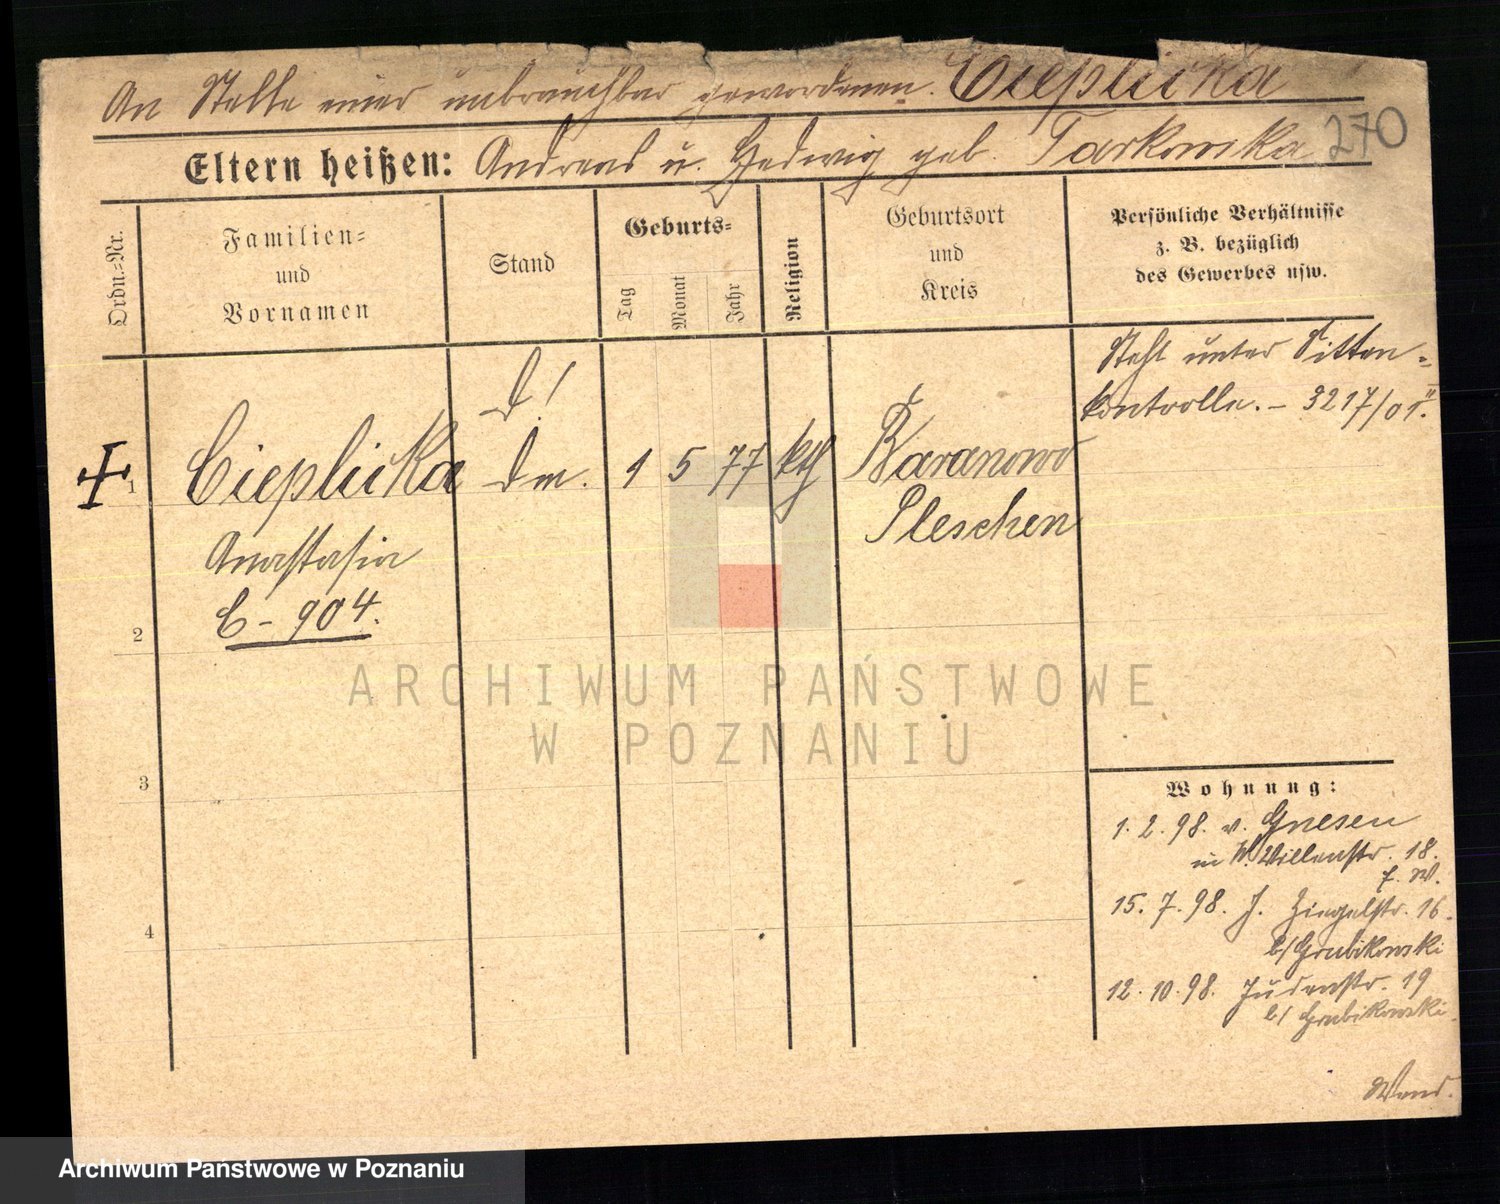 An Stelle einer unbrauchbar gewordenen. Cieplicka
270
Eltern heißen: Andreas u. Hedwig geb. Tarkowska
Ordn.=Nr.
Familien=
und
Vornamen
Stand
Geburts=
Tag
Monat
Jahr
Religion
Geburtsort
und
Kreis
Persönliche Verhältnisse
z. B. bezüglich
des Gewerbes usw.
Steht unter Sitten-
kontrolle. – 3217/01. II
1
Cieplicka
Dm.
1
5
77
kth
Baranowo
Pleschen
Anastasia
C – 904.
2
3
4
Wohnung:
1. 2. 98. v. Gnesen
in W. Villenstr. 18.
15. 7. 98. J. Ziegelstr. 16.
b/ Grubikowski
12. 10. 98. Judenstr. 19
b/ Grubikowski.
Wend.
ARCHIWUM PAŃSTWOWE
W POZNANIU
Archiwum Państwowe w Poznaniu